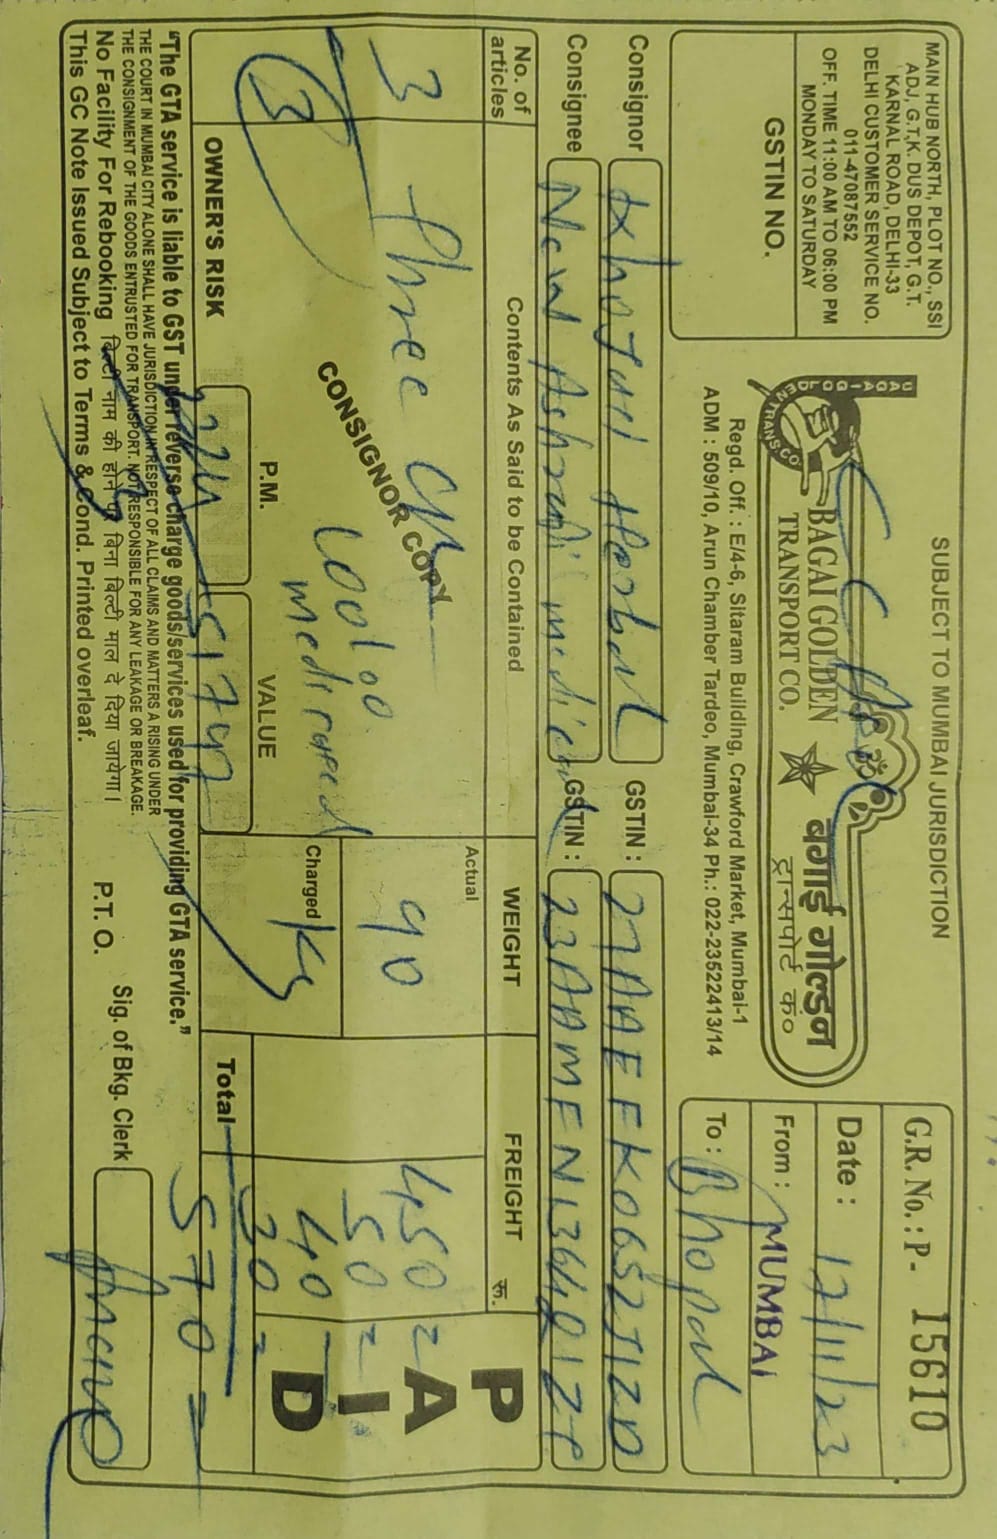 SUBJECT TO MUMBAI JURISDICTION
MAIN HUB NORTH, PLOT NO., SSI
ADJ, G.T.K. DUS DEPOT, G.T.
KARNAL ROAD, DELHI-33
DELHI CUSTOMER SERVICE NO.
011-47087552
OFF. TIME 11:00 AM TO 06:00 PM
MONDAY TO SATURDAY
GSTIN NO.
BAGAI GOLDEN
TRANSPORT CO.
बगाई गोल्डन
ट्रान्सपोर्ट कं०
Regd. Off. : E/4-6, Sitaram Building, Crawford Market, Mumbai-1
ADM : 509/10, Arun Chamber Tardeo, Mumbai-34 Ph.: 022-23522413/14
G.R. No. : P- 15610
Date : 17/11/23
From : MUMBAI
To : Bhopal
Consignor Khojati Herbal GSTIN : 27AAEFK0652J1ZD
Consignee New Ashrafi GSTIN :
No. of articles Contents As Said to be Contained WEIGHT FREIGHT रू.
3 Three Actual 90 450 =
CONSIGNOR COPY
50 =
3 Charged Kg 40
30 =
PAID
OWNER'S RISK P.M. VALUE
Total 570 =
"The GTA service is liable to GST under reverse charge goods/services used for providing GTA service."
THE COURT IN MUMBAI CITY ALONE SHALL HAVE JURISDICTION IN RESPECT OF ALL CLAIMS AND MATTERS A RISING UNDER
THE CONSIGNMENT OF THE GOODS ENTRUSTED FOR TRANSPORT. NOT RESPONSIBLE FOR ANY LEAKAGE OR BREAKAGE.
No Facility For Rebooking बिल्टी नाम की होने पर बिना बिल्टी माल दे दिया जायेगा।
This GC Note Issued Subject to Terms & Cond. Printed overleaf.
P.T.O. Sig. of Bkg. Clerk